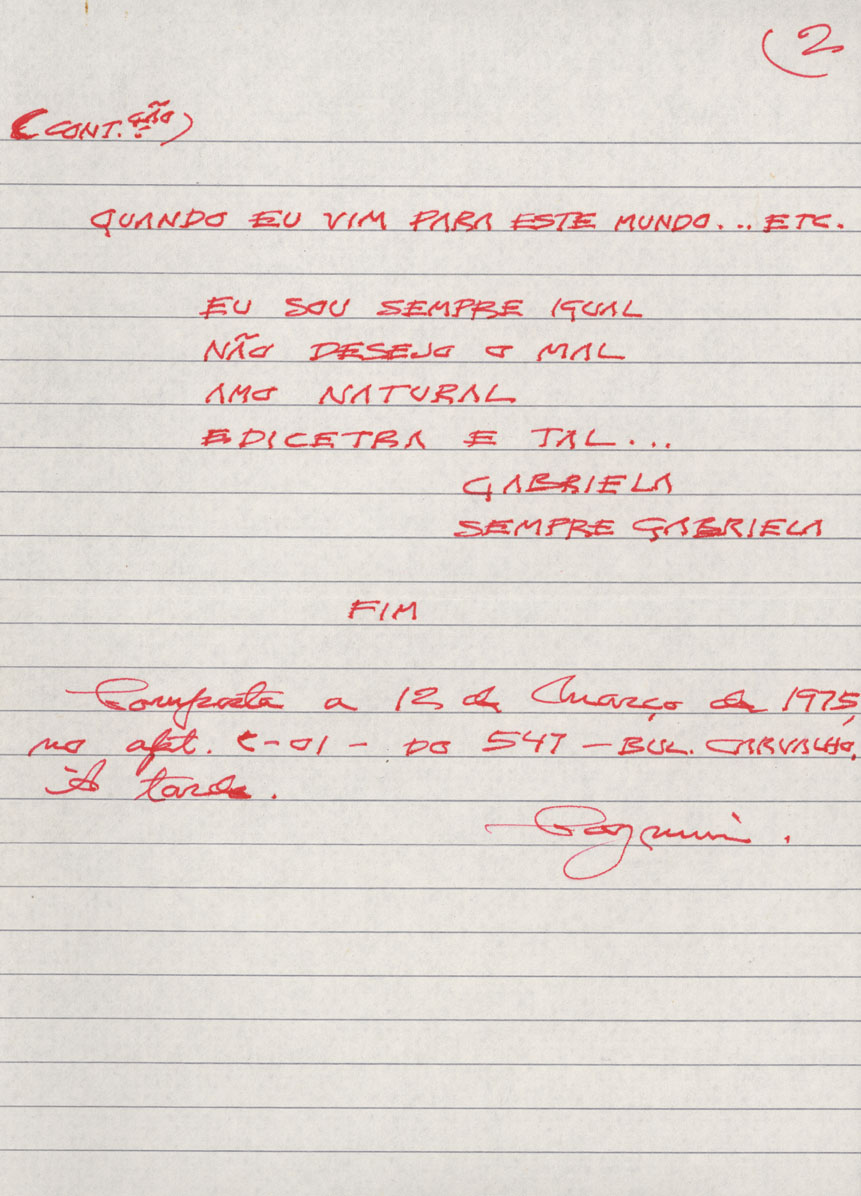 2
(CONT.ÇÃO)
QUANDO EU VIM PARA ESTE MUNDO... ETC.
EU SOU SEMPRE IGUAL
NÃO DESEJO O MAL
AMO NATURAL
EDICETRA E TAL...
GABRIELA
SEMPRE GABRIELA
FIM
Composta a 12 de março de 1975,
no apt. C-01 - DO 547 - BUL. CARVALHO,
À tarde.